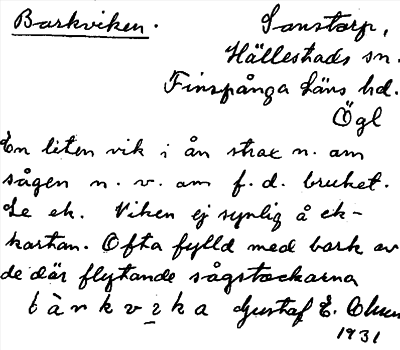 Barkviken.
Sonstorp,
Hällestads sn.
Finspånga läns hd.
Ögl
En liten vik i ån strax n. om
sågen n. v. om f. d. bruket.
Se ek. Viken ej synlig å ek-
kartan. Ofta fylld med bark av
de där flytande sågstockarna
bàrkvika Gustaf E. Olson
1931